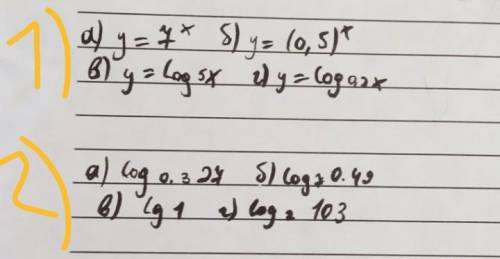 1) а) y = 7^x б) y = (0,5)^x
в) y = log 5x г) y = log 0,2x
2) а) log 0.3 27 б) log 7 0.49
в) lg 1 г) log 2 103